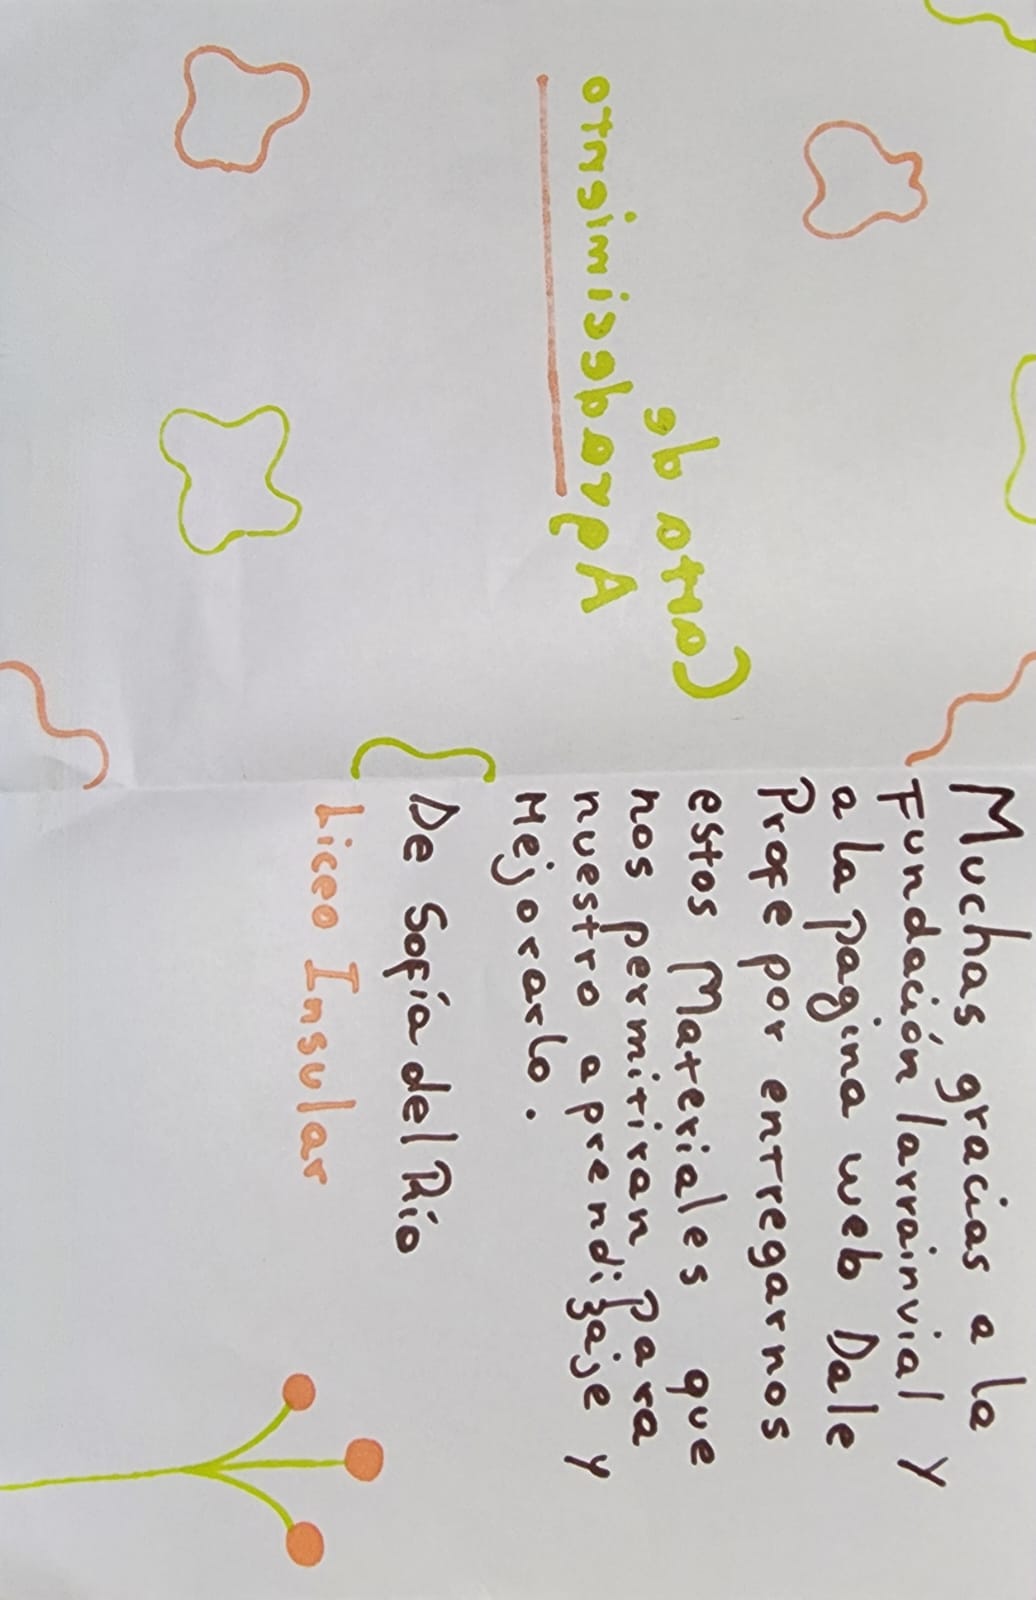 Carta de
Agradecimiento
Muchas gracias a la
Fundación larrainvial y
a la pagina web Dale
Profe por entregarnos
estos Materiales que
nos permitiran para
nuestro aprendizaje y
Mejorarlo.
De Sofía del Río
Liceo Insular